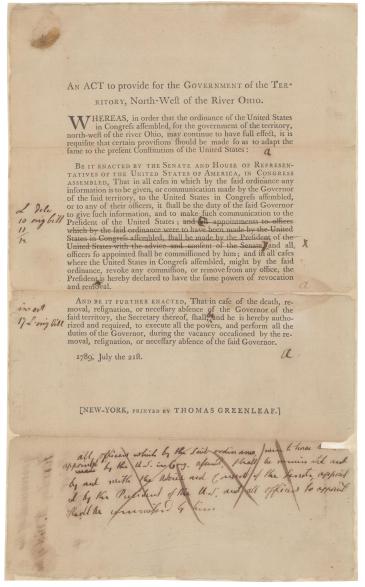 AN ACT to provide for the GOVERNMENT of the TER-
RITORY, North-West of the River OHIO.
WHEREAS, in order that the ordinance of the United States
in Congress assembled, for the government of the territory,
north-west of the river Ohio, may continue to have full effect, it is
requisite that certain provisions should be made so as to adapt the
same to the present Constitution of the United States :
a
BE IT ENACTED BY THE SENATE AND HOUSE OF REPRESEN-
TATIVES OF THE UNITED STATES OF AMERICA, IN CONGRESS
ASSEMBLED, That in all cases in which by the said ordinance any
information is to be given, or communication made by the Governor
of the said territory, to the United States in Congress assembled,
or to any of their officers, it shall be the duty of the said Governor
to give such information, and to make such communication to the
President of the United States ; and appointments to offices
which by the said ordinance were to have been made by the United
States in Congress assembled, shall be made by the President of the
United States with the advice and consent of the Senate and all
officers so appointed shall be commissioned by him ; and in all cases
where the United States in Congress assembled, might by the said
ordinance, revoke any commission, or remove from any office, the
President is hereby declared to have the same powers of revocation
and removal.
a
AND BE IT FURTHER ENACTED, That in case of the death, re-
moval, resignation, or necessary absence of the Governor of the
said territory, the Secretary thereof, shall and he is hereby autho-
rized and required, to execute all the powers, and perform all the
duties of the Governor, during the vacancy occasioned by the re-
moval, resignation, or necessary absence of the said Governor.
1789, July the 21st.
a
[NEW-YORK, PRINTED BY THOMAS GREENLEAF.]
all officers which by the said ordinance
by the U.S. in Cong.
by and with the advice and Consent of the Senate, appoint
ed by the President of the U.S. and all officers so appoint
shall be by him